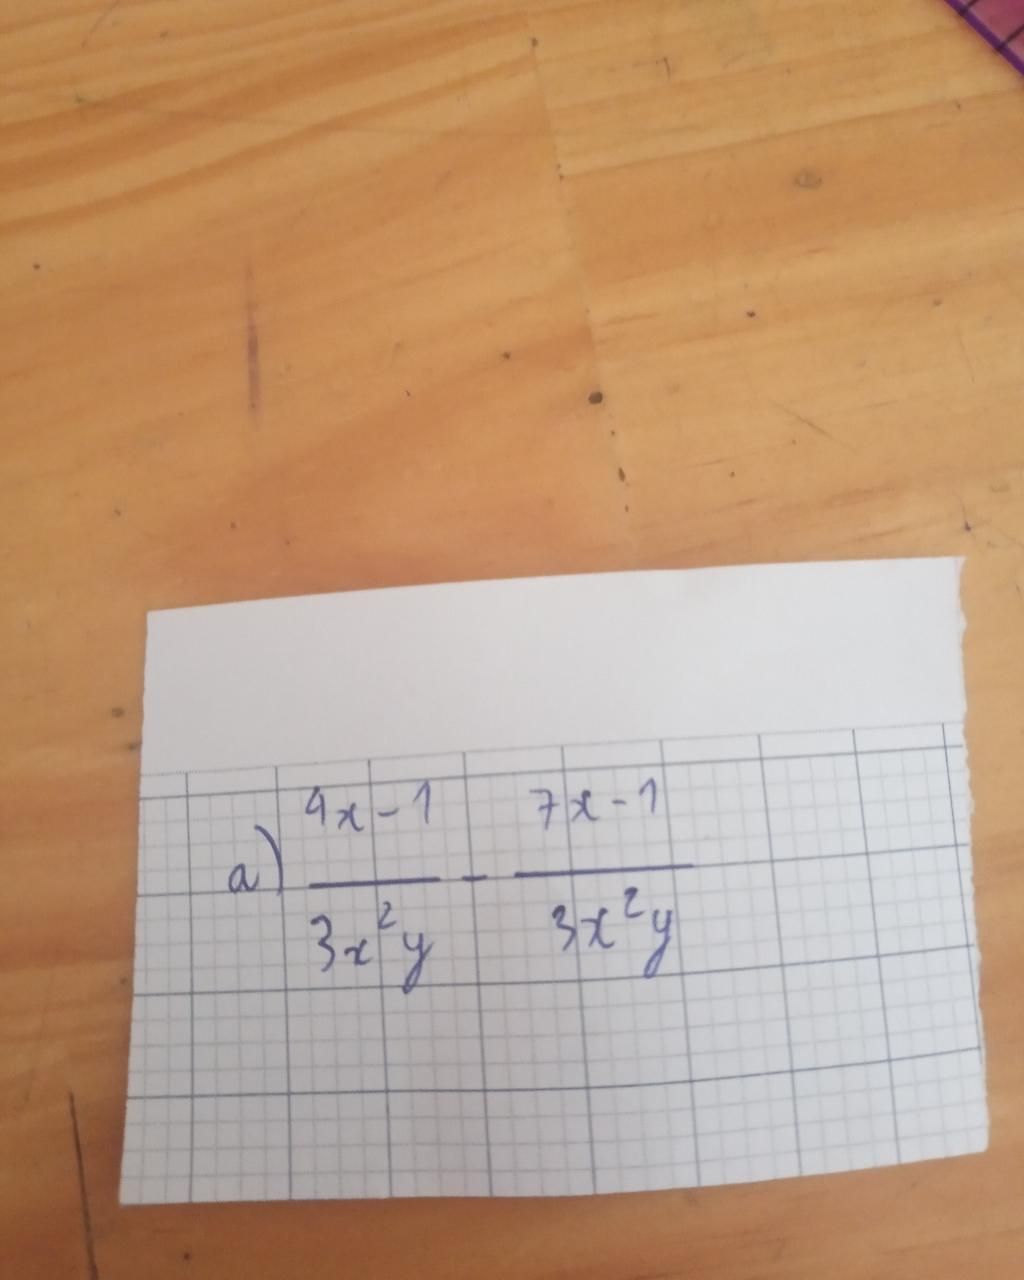 a) \frac{4x-1}{3x^2y} - \frac{7x-1}{3x^2y}